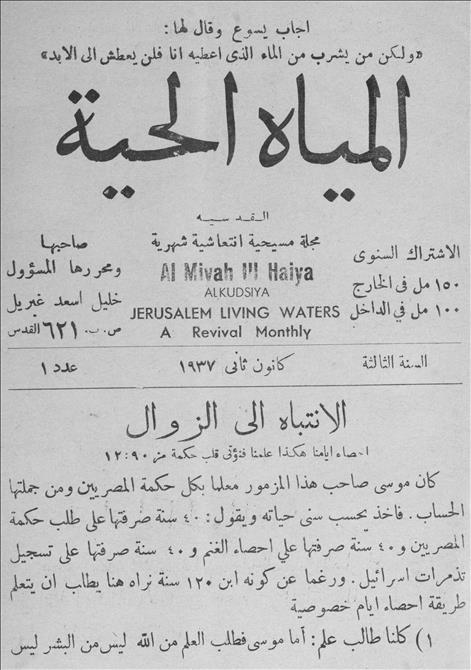 اجاب يسوع وقال لها :
«ولكن من يشرب من الماء الذى اعطيه انا فلن يعطش الى الابد»
المياه الحية
القدسيه
مجلة مسيحية انتعاشية شهرية
Al Miyah Ill Haiya
ALKUDSIYA
JERUSALEM LIVING WATERS
A Revival Monthly
الاشتراك السنوى
١٥٠ مل فى الخارج
١٠٠ مل في الداخل
صاحبها
ومحررها المسؤول
خليل اسعد غبريل
ص. ب. ٦٢١ القدس
السنة الثالثة
كانون ثانى ١٩٣٧
عدد ١
الانتباه الى الزوال
احصاء ايامنا هكذا علمنا فنؤتى قلب حكمة مز ٩٠:١٢
كان موسى صاحب هذا المزمور معلما بكل حكمة المصريين ومن جملتها
الحساب . فاخذ يحسب سنى حياته ويقول : ٤٠ سنة صرفتها على طلب حكمة
المصريين و٤٠ سنة صرفتها علي احصاء الغنم و ٤٠ سنة صرفتها على تسجيل
تذمرات اسرائيل . ورغما عن كونه ابن ١٢٠ سنة نراه هنا يطالب ان يتعلم
طريقة احصاء ايام خصوصية
١) كلنا طالب علم : أما موسى فطلب العلم من الله ليس من البشر ليس